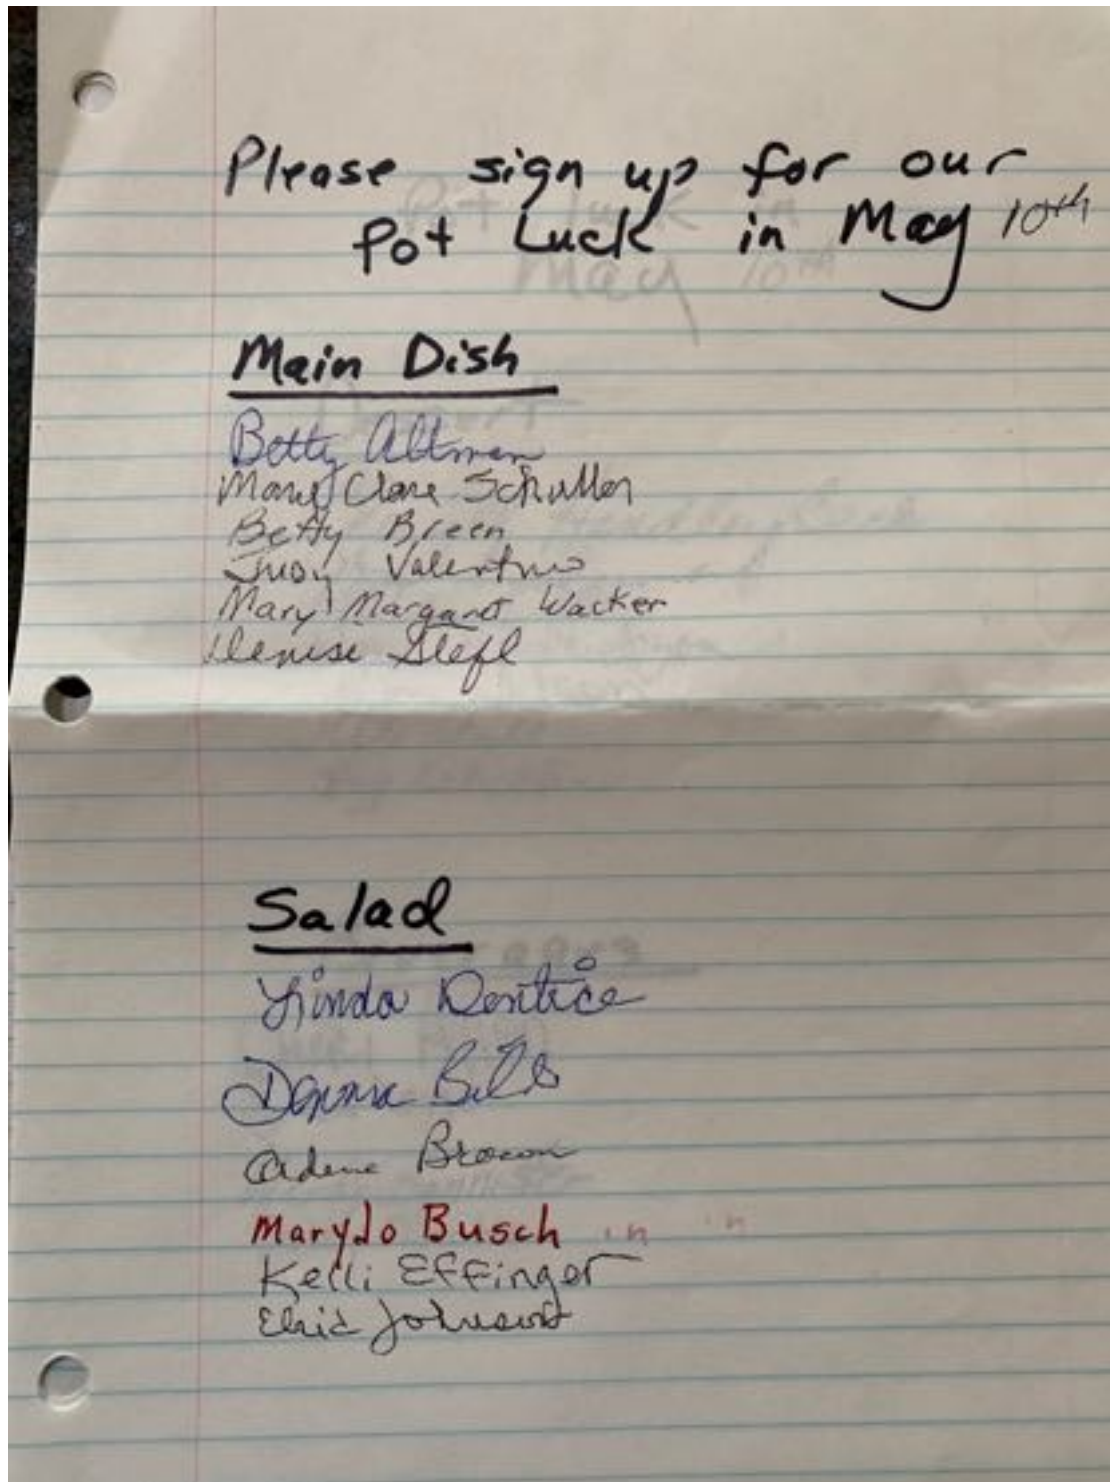 Please sign up for our
Pot Luck in May 10th
Main Dish
Betty Altman
Mary Clare Schuller
Betty Breen
Judy Valentino
Mary Margaret Wacker
Denise Stefl
Salad
Linda Dentice
Donna
Brown
MaryJo Busch
Kelli Effinger
Johnson